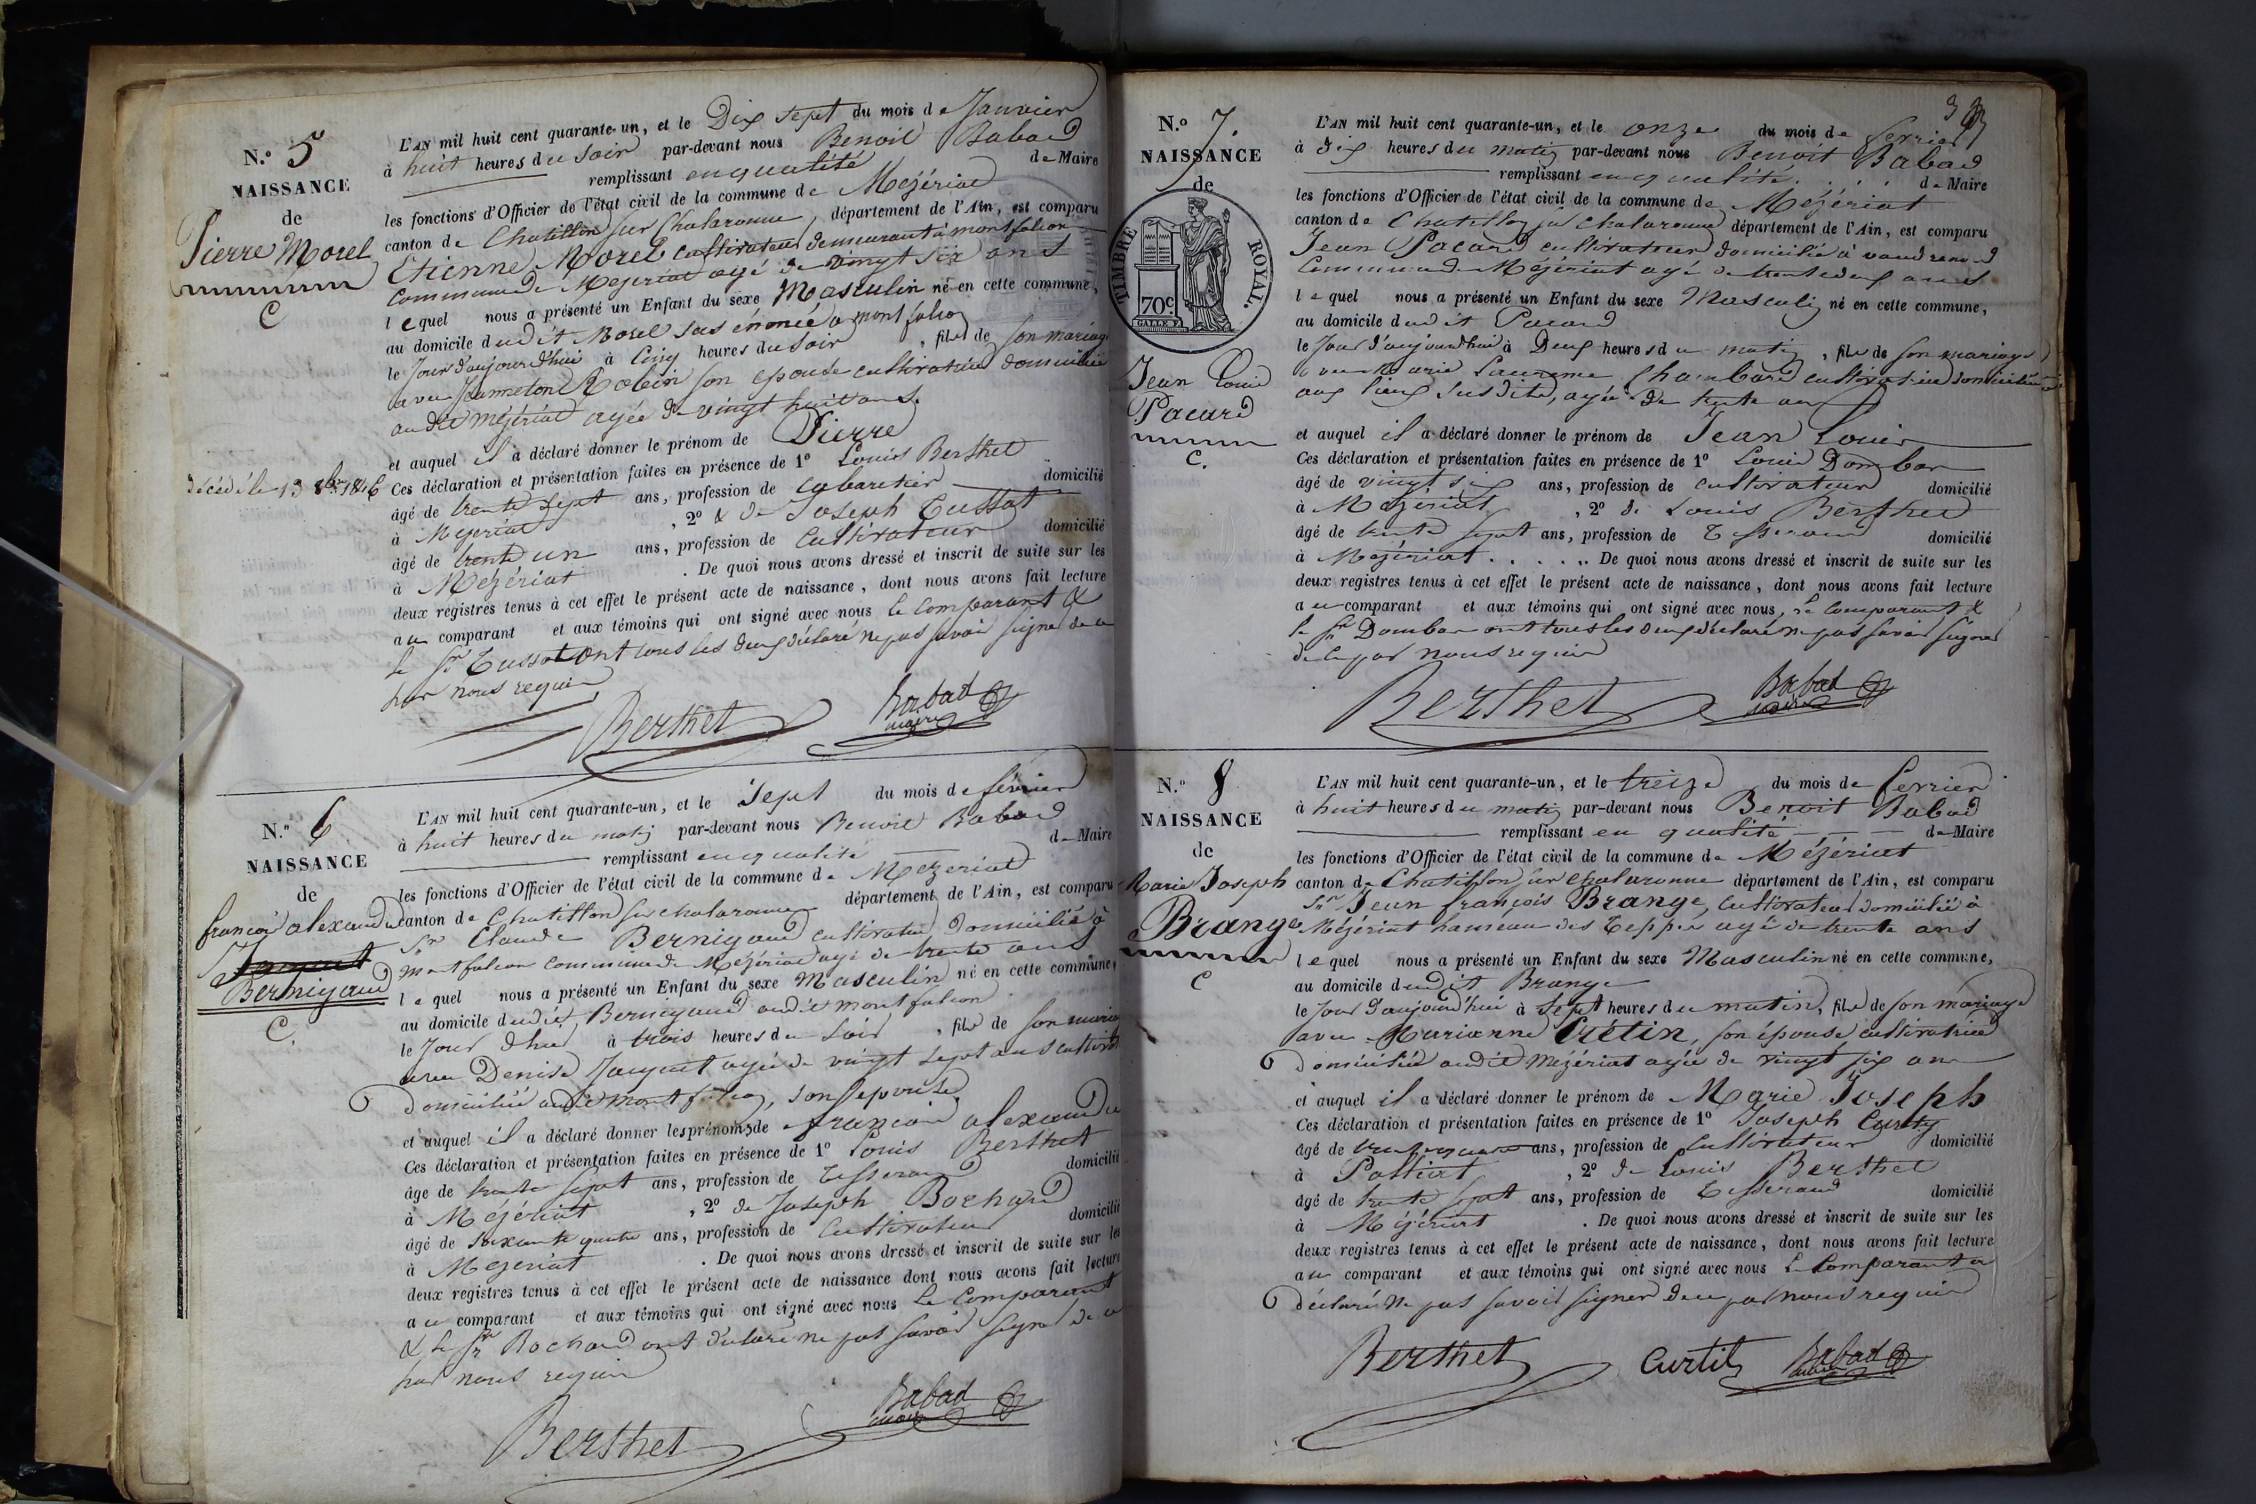 N.º 5
NAISSANCE
de
Pierre Morel
C
décédé le 13 8bre 1846
L'AN mil huit cent quarante-un, et le Dix sept du mois de Janvier
à huit heures du soir par-devant nous Benoit Babad
remplissant en qualité de Maire
les fonctions d'Officier de l'état civil de la commune de Mézériat
canton de Chatillon sur Chalaronne, département de l'Ain, est comparu
Etienne Morel cultivateur demeurant à montfalcon
Commune de Mezeriat agé de vingt six ans
lequel nous a présenté un Enfant du sexe Masculin né en cette commune,
au domicile dudit Morel sus énoncé a montfalcon
le Jour d'aujourd'hui à Cinq heures du soir, fils de son mariage
avec Jeanneton Robin son epouse cultivatrice domiciliée
audit mézériat agée de vingt huit ans.
et auquel il a déclaré donner le prénom de Pierre
Ces déclaration et présentation faites en présence de 1º Louis Berthet
âgé de trente sept ans, profession de cabaretier domicilié
à Mezeriat, 2º & de Joseph Tussot
âgé de trente un ans, profession de Cultivateur domicilié
à Mézériat. De quoi nous avons dressé et inscrit de suite sur les
deux registres tenus à cet effet le présent acte de naissance, dont nous avons fait lecture
au comparant et aux témoins qui ont signé avec nous le Comparant &
le Sr Tussot ont tous les deux déclaré ne pas savoir signer de ce
par nous requis
Berthet Babad maire
N.º 6
NAISSANCE
de
françois alexandre
Jaquet
Bernigaud
C.
L'AN mil huit cent quarante-un, et le Sept du mois de février
à huit heures du matin par-devant nous Benoit Babad
remplissant en qualité de Maire
les fonctions d'Officier de l'état civil de la commune de Mezeriat
canton de Chatillon sur chalaronne département de l'Ain, est comparu
Sr Claude Bernigaud cultivateur domicilié à
Montfalcon commune de Mézériat agé de trente ans
lequel nous a présenté un Enfant du sexe Masculin né en cette commune,
au domicile dudit Bernigaud audit montfalcon
le Jour d'hier à trois heures du soir, fils de son mariage
avec Denise Jaquet agée de vingt sept ans cultivatrice
domiciliée audit Montfalcon, son epouse.
et auquel il a déclaré donner les prénoms de françois alexandre
Ces déclaration et présentation faites en présence de 1º Louis Berthet
âge de trente sept ans, profession de Tisserand domicilié
à Mézériat, 2º de Joseph Bochard
âgé de soixante quatre ans, profession de Cultivateur domicilié
à Mezeriat. De quoi nous avons dressé et inscrit de suite sur les
deux registres tenus à cet effet le présent acte de naissance dont nous avons fait lecture
au comparant et aux témoins qui ont signé avec nous Le Comparant
& le Sr Bochard ont déclaré ne pas savoir signer de ce
par nous requis
Berthet Babad maire
N.º 7.
NAISSANCE
de
TIMBRE ROYAL.
70c.
Jean Louis
Pacard
C.
L'AN mil huit cent quarante-un, et le onze du mois de ferrier
à dix heures du matin par-devant nous Benoit Babad
remplissant en qualité de Maire
les fonctions d'Officier de l'état civil de la commune de Mézériat
canton de Chatillon sur chalaronne département de l'Ain, est comparu
Jean Pacard cultivateur domicilié à vaudrenod
Commune de Mézériat agé de trente deux ans
lequel nous a présenté un Enfant du sexe Masculin né en cette commune,
au domicile dudit Pacard
le Jour d'aujourdhui à Deux heures du matin, fils de son mariage
avec Marie Chambard cultivatrice domiciliée
aux lieux susdits, agée de trente ans
et auquel il a déclaré donner le prénom de Jean Louis
Ces déclaration et présentation faites en présence de 1º Louis Dombar
âgé de vingt six ans, profession de cultivateur domicilié
à Mézériat, 2º de Louis Berthet
âgé de trente sept ans, profession de Tisserand domicilié
à Mezériat..... De quoi nous avons dressé et inscrit de suite sur les
deux registres tenus à cet effet le présent acte de naissance, dont nous avons fait lecture
au comparant et aux témoins qui ont signé avec nous, Le Comparant &
le Sr Dombar ont tous les deux déclaré ne pas savoir signer
de ce par nous requis
Berthet Babad maire
N.º 8
NAISSANCE
de
Marie Joseph
Brange
C
L'AN mil huit cent quarante-un, et le treize du mois de ferrier
à huit heures du matin par-devant nous Benoit Babad
remplissant en qualité de Maire
les fonctions d'Officier de l'état civil de la commune de Mézériat
canton de Chatillon sur Chalaronne département de l'Ain, est comparu
Sr Jean françois Brange, cultivateur domicilié à
Mézériat hameau des Teppes agé de trente ans
lequel nous a présenté un Enfant du sexe Masculin né en cette commune,
au domicile dudit Brange
le Jour d'aujourd'hui à Sept heures du matin, fils de son mariage
avec Marianne Crétin, son épouse cultivatrice
domiciliée audit Mézériat agée de vingt six ans
et auquel il a déclaré donner le prénom de Marie Joseph
Ces déclaration et présentation faites en présence de 1º Joseph Curty
âgé de ans, profession de Cultivateur domicilié
à Polliat, 2º de Louis Berthet
âgé de trente sept ans, profession de Tisserand domicilié
à Mézériat. De quoi nous avons dressé et inscrit de suite sur les
deux registres tenus à cet effet le présent acte de naissance, dont nous avons fait lecture
au comparant et aux témoins qui ont signé avec nous Le Comparant a
déclaré Ne pas savoir signer de ce par nous requis
Berthet Curtil Babad maire